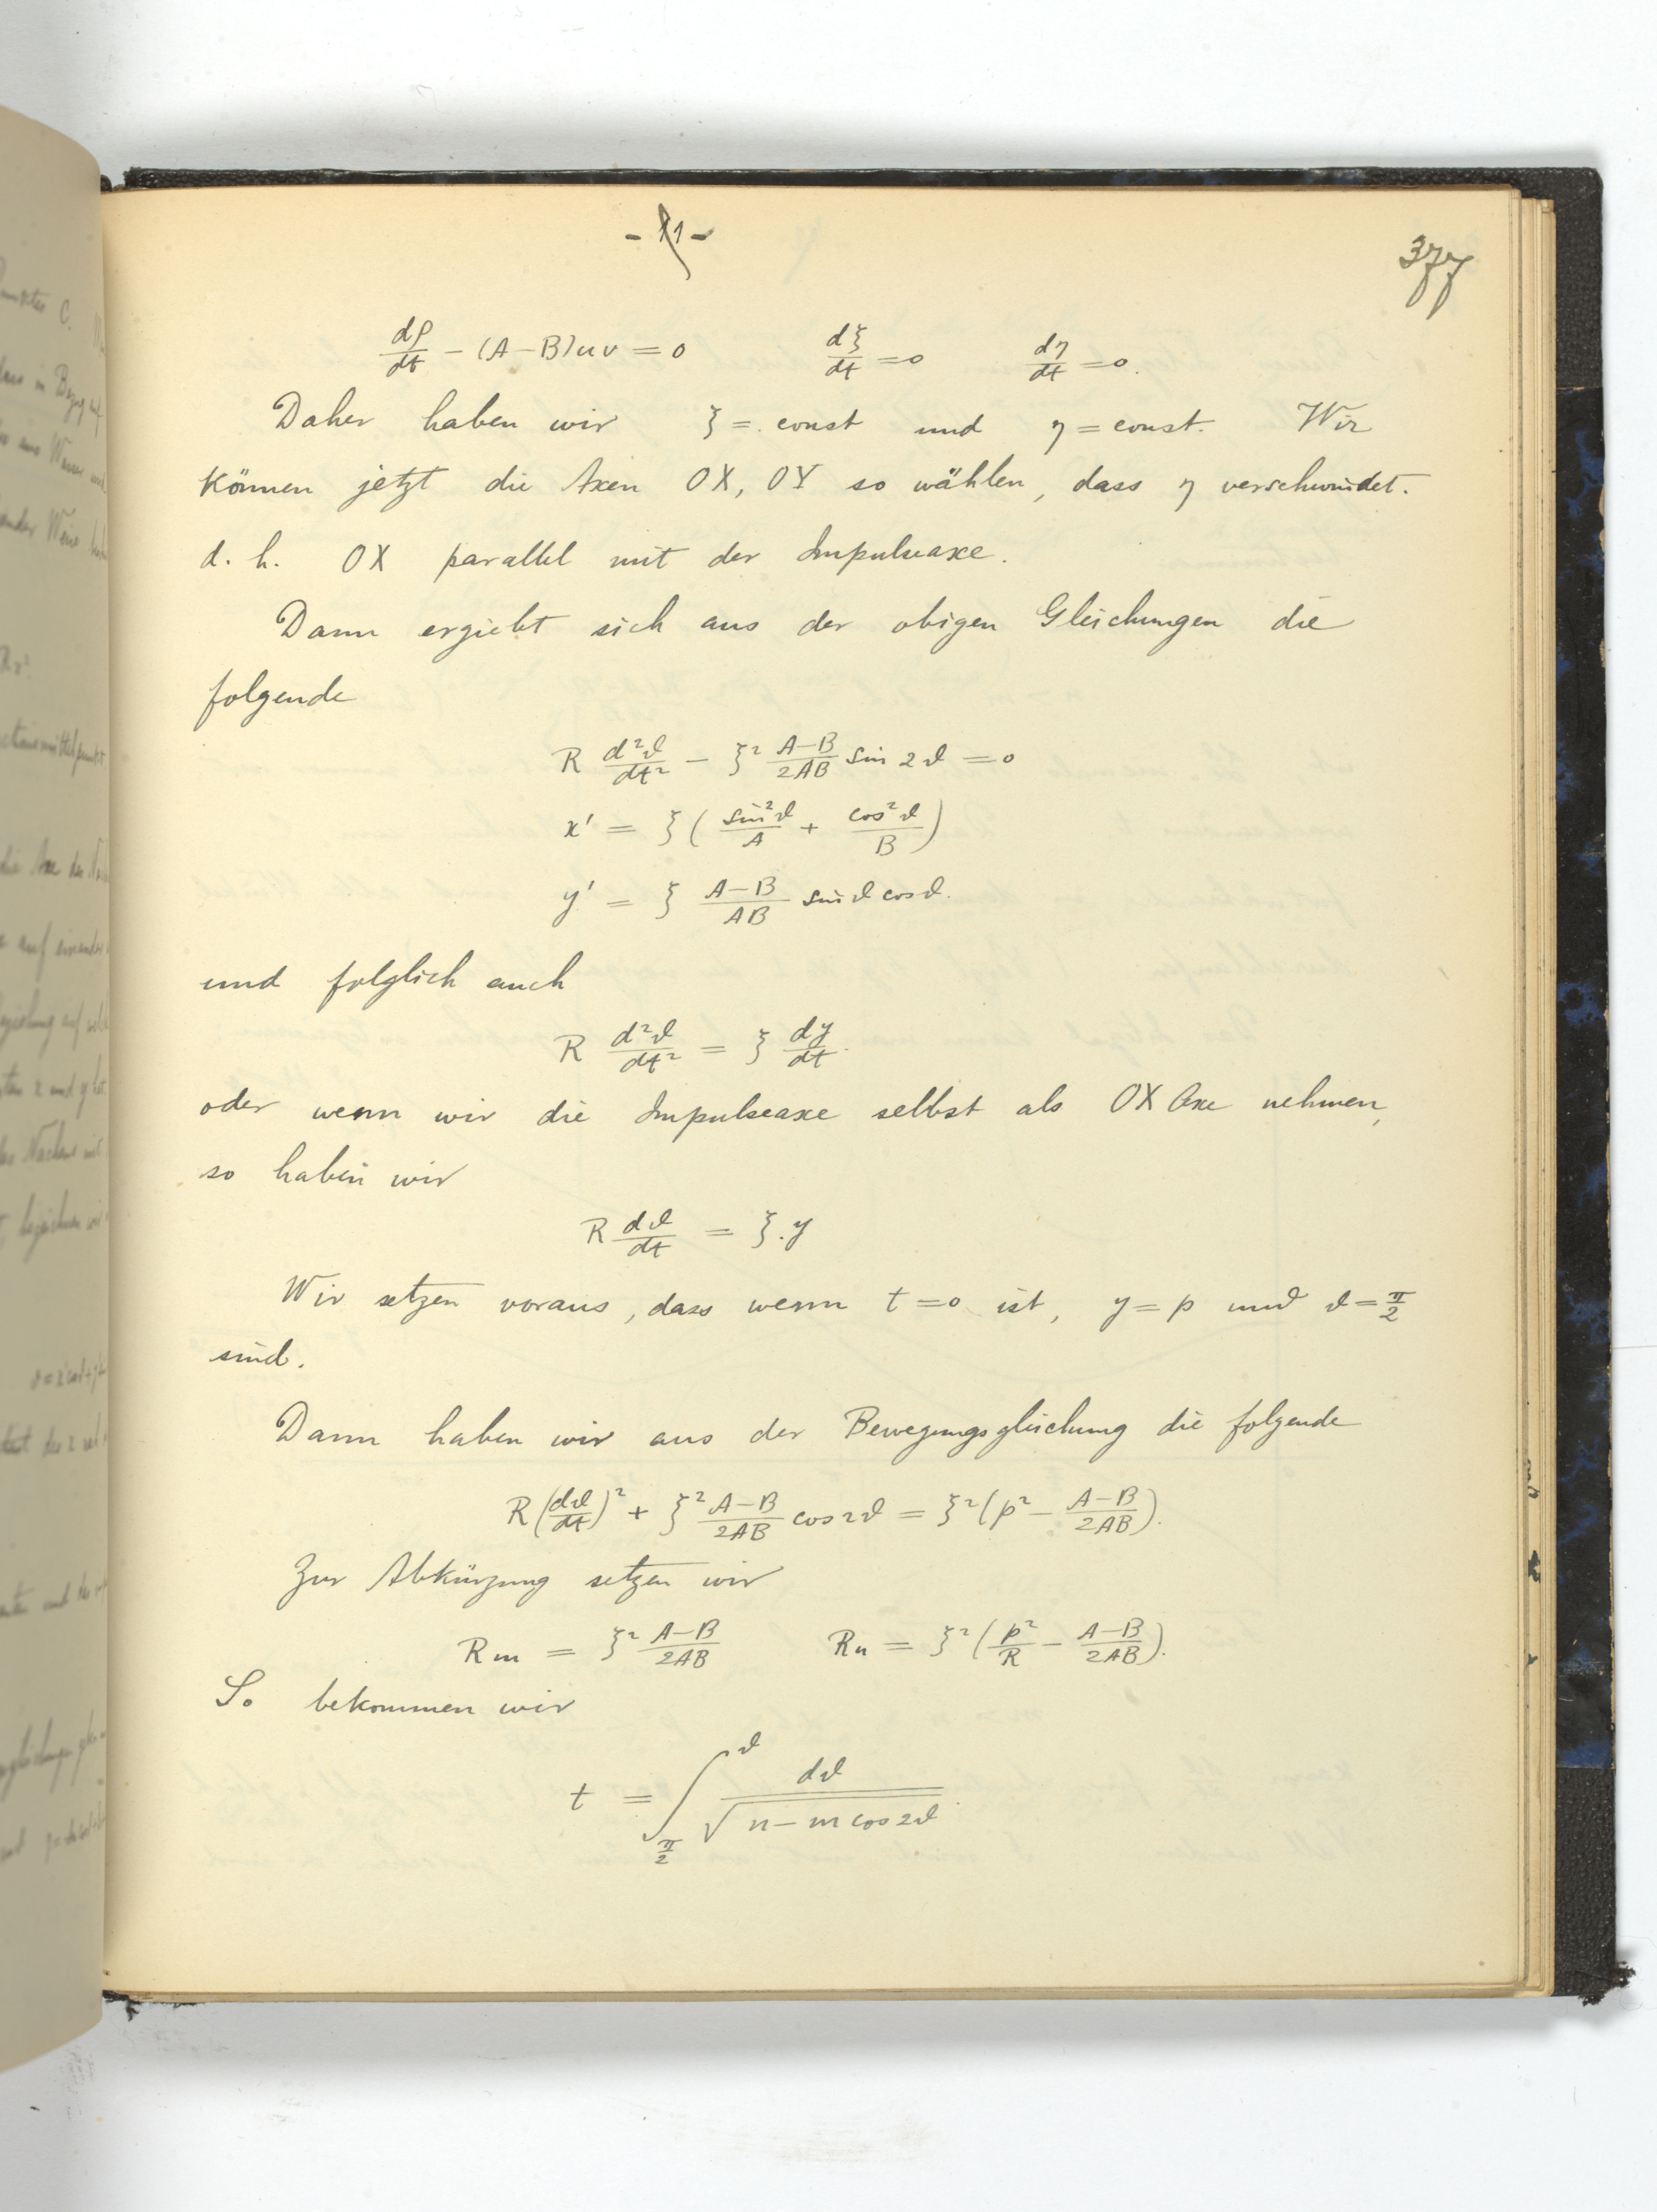 - 11 -
377
dρ/dt − (A−B)uv = 0    dξ/dt = 0    dη/dt = 0.
Daher haben wir ξ = const und η = const. Wir
können jetzt die Axen OX, OY so wählen, dass η verschwindet.
d. h. OX parallel mit der Impulseaxe.
Dann ergiebt sich aus der obigen Gleichungen die
folgende
R d²ϑ/dt² − ξ² (A−B)/2AB sin 2ϑ = 0
x' = ξ ( sin²ϑ/A + cos²ϑ/B )
y' = ξ (A−B)/AB sinϑ cosϑ.
und folglich auch
R d²ϑ/dt² = ξ dy/dt.
oder wenn wir die Impulseaxe selbst als OX Axe nehmen,
so haben wir
R dϑ/dt = ξ.y
Wir setzen voraus, dass wenn t = 0 ist, y = p und ϑ = π/2
sind.
Dann haben wir aus der Bewegungsgleichung die folgende
R (dϑ/dt)² + ξ² (A−B)/2AB cos 2ϑ = ξ² (p² − (A−B)/2AB).
Zur Abkürzung setzen wir
Rm = ξ² (A−B)/2AB    Rn = ξ² (p²/R − (A−B)/2AB).
So bekommen wir
t = ∫_{π/2}^{ϑ} dϑ / √(n − m cos 2ϑ)